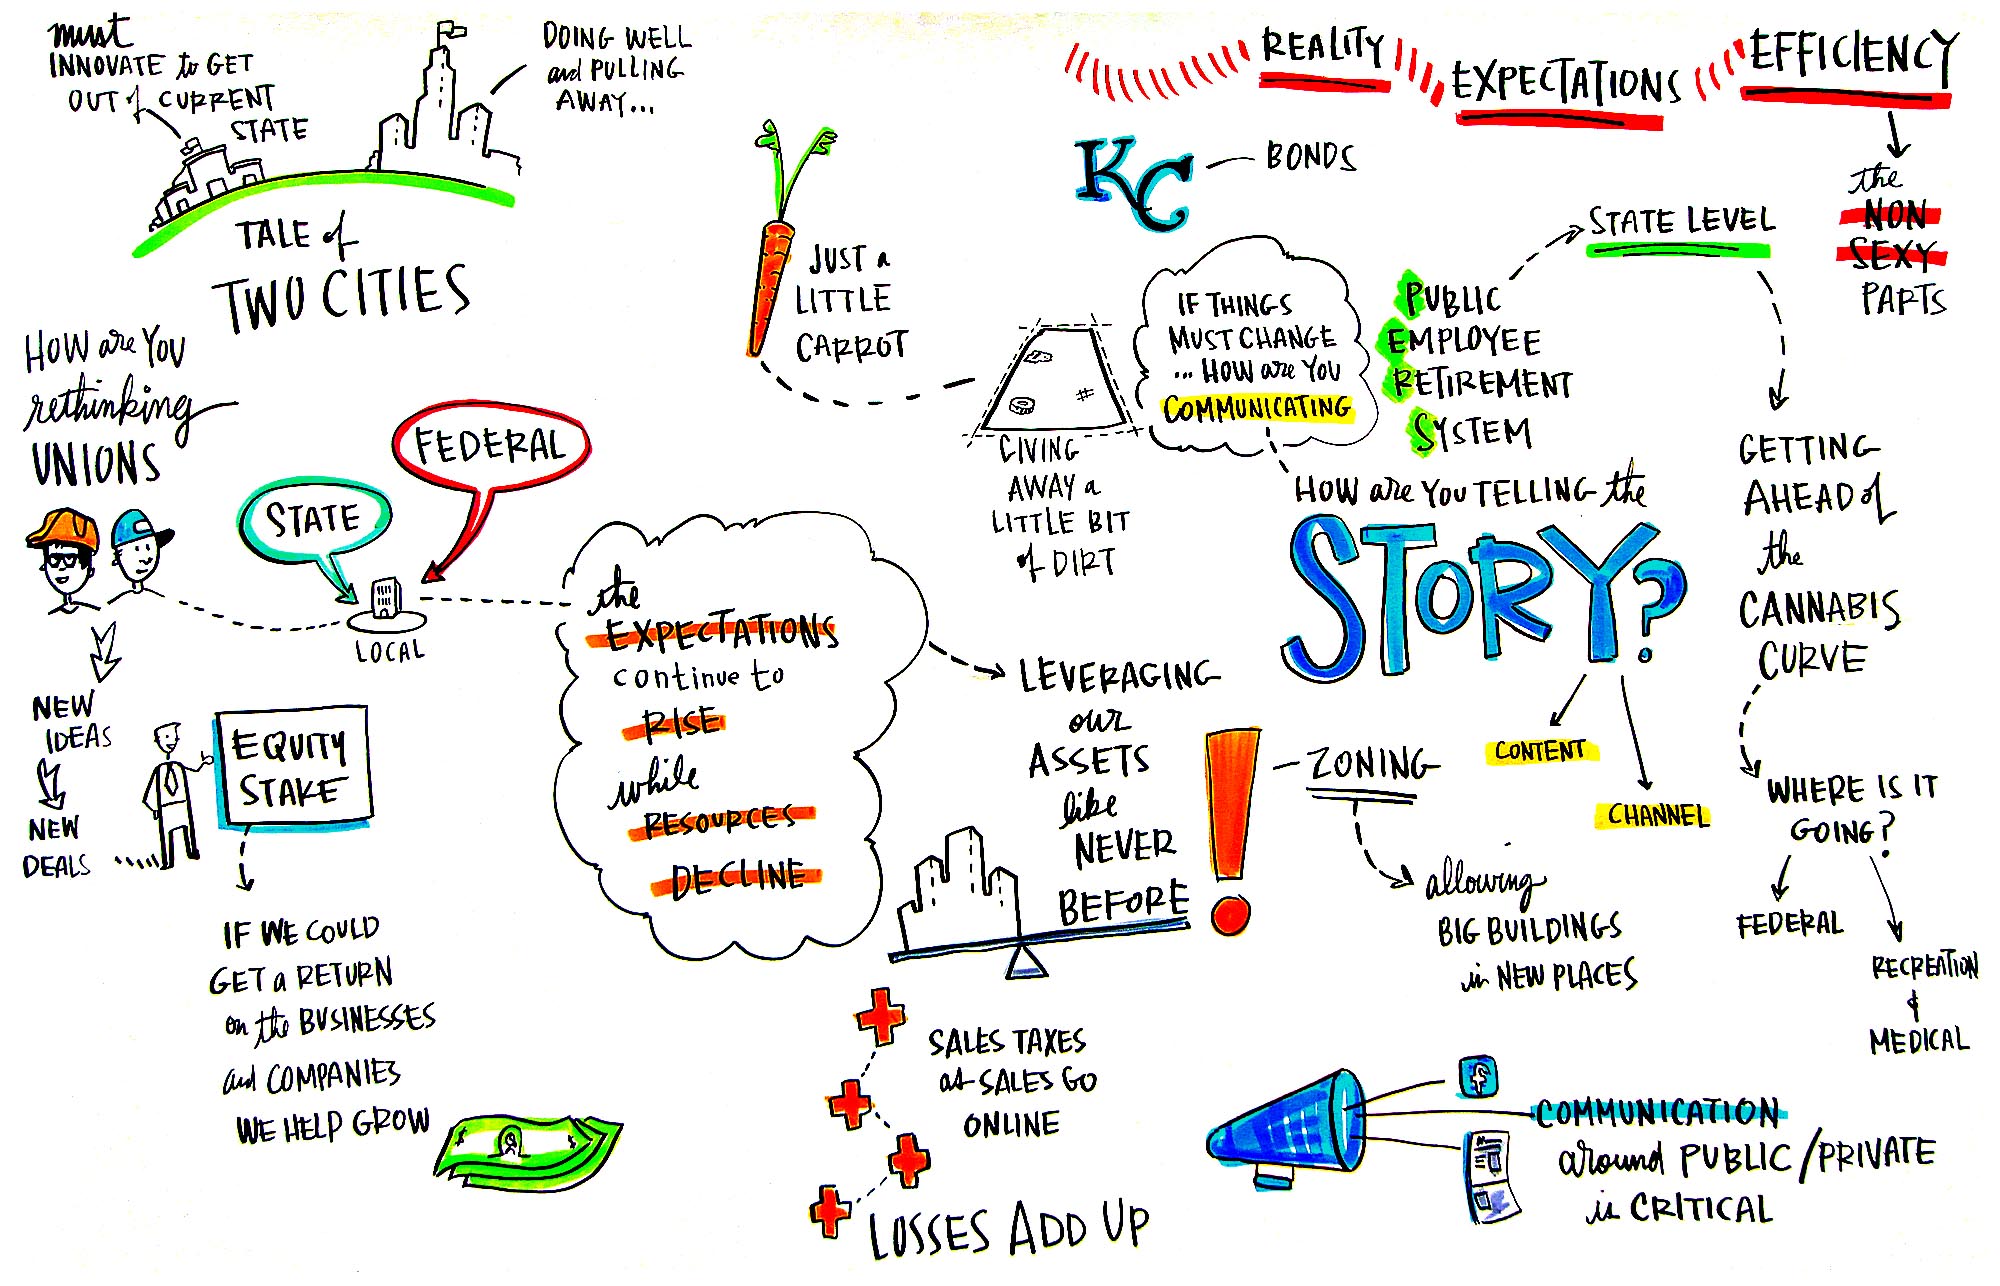 must
INNOVATE to GET
OUT of CURRENT
STATE
DOING WELL
and PULLING
AWAY...
TALE of
TWO CITIES
HOW are YOU
rethinking
UNIONS
STATE
FEDERAL
LOCAL
NEW
IDEAS
NEW
DEALS
EQUITY
STAKE
IF WE COULD
GET a RETURN
on the BUSINESSES
and COMPANIES
WE HELP GROW
$
$
the
EXPECTATIONS
continue to
RISE
while
RESOURCES
DECLINE
JUST a
LITTLE
CARROT
GIVING
AWAY a
LITTLE BIT
of DIRT
LEVERAGING
our
ASSETS
like
NEVER
BEFORE
!
SALES TAXES
as SALES GO
ONLINE
LOSSES ADD UP
REALITY
EXPECTATIONS
EFFICIENCY
the
NON
SEXY
PARTS
KC
BONDS
IF THINGS
MUST CHANGE
... HOW are YOU
COMMUNICATING
PUBLIC
EMPLOYEE
RETIREMENT
SYSTEM
STATE LEVEL
GETTING
AHEAD of
the
CANNABIS
CURVE
WHERE IS IT
GOING?
FEDERAL
RECREATION
&
MEDICAL
HOW are YOU TELLING the
STORY?
CONTENT
CHANNEL
ZONING
allowing
BIG BUILDINGS
in NEW PLACES
f
COMMUNICATION
around PUBLIC/PRIVATE
is CRITICAL